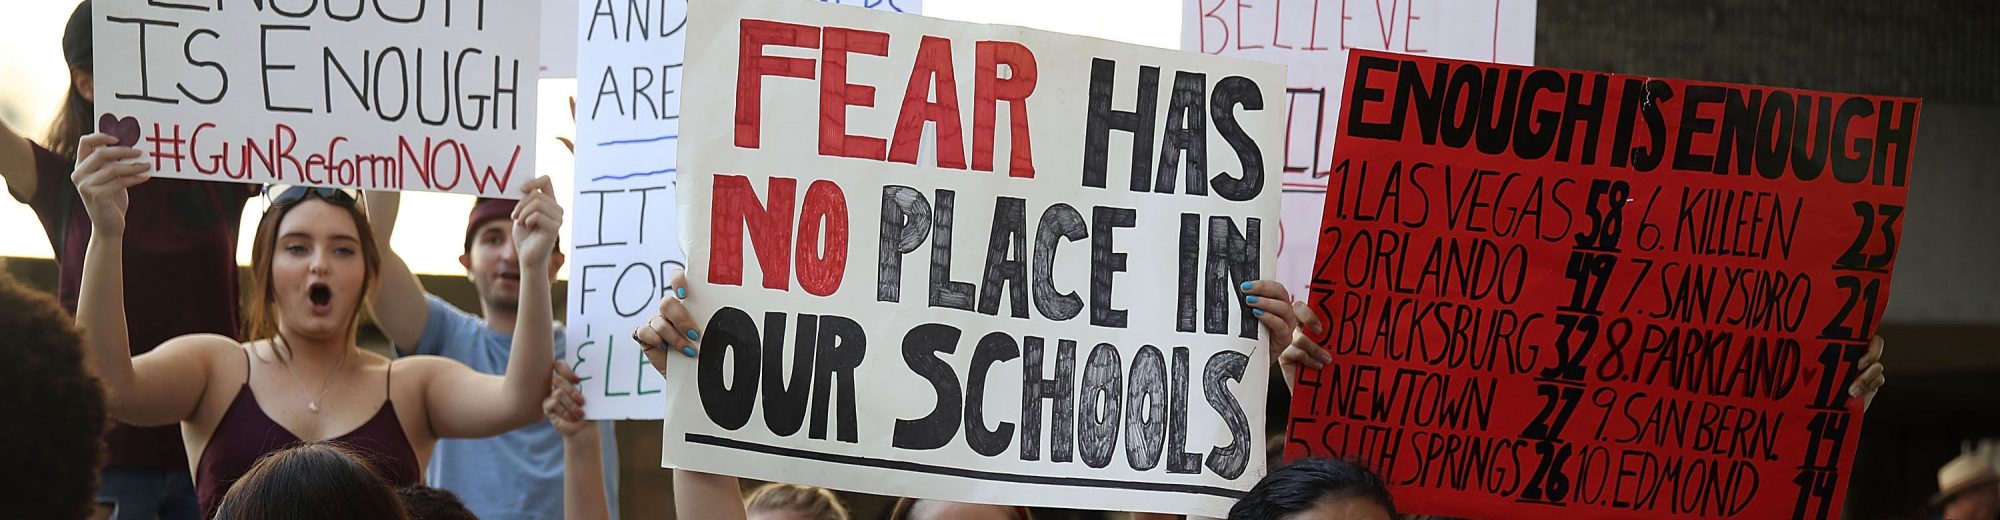 ENOUGH
IS ENOUGH
#GUNReformNOW
AND
ARE
IT'
FOR
& LE
FEAR HAS
NO PLACE IN
OUR SCHOOLS
BELIEVE
ENOUGH IS ENOUGH
1. LAS VEGAS 58
2. ORLANDO 49
3. BLACKSBURG 32
4. NEWTOWN 27
5. SUTH SPRINGS 26
6. KILLEEN 23
7. SAN YSIDRO 21
8. PARKLAND 17
9. SAN BERN. 14
10. EDMOND 14